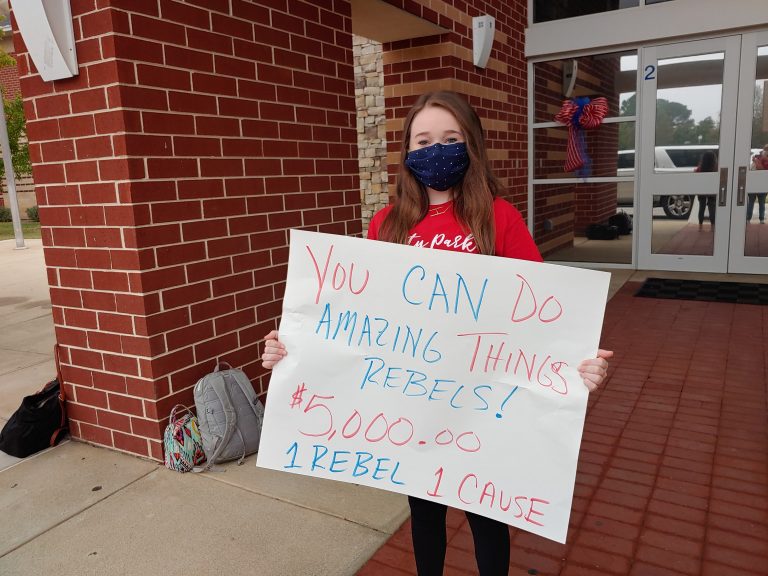 2
ty Park
YOU CAN DO
AMAZING THINGS
REBELS!
$5,000.00
1 REBEL 1 CAUSE